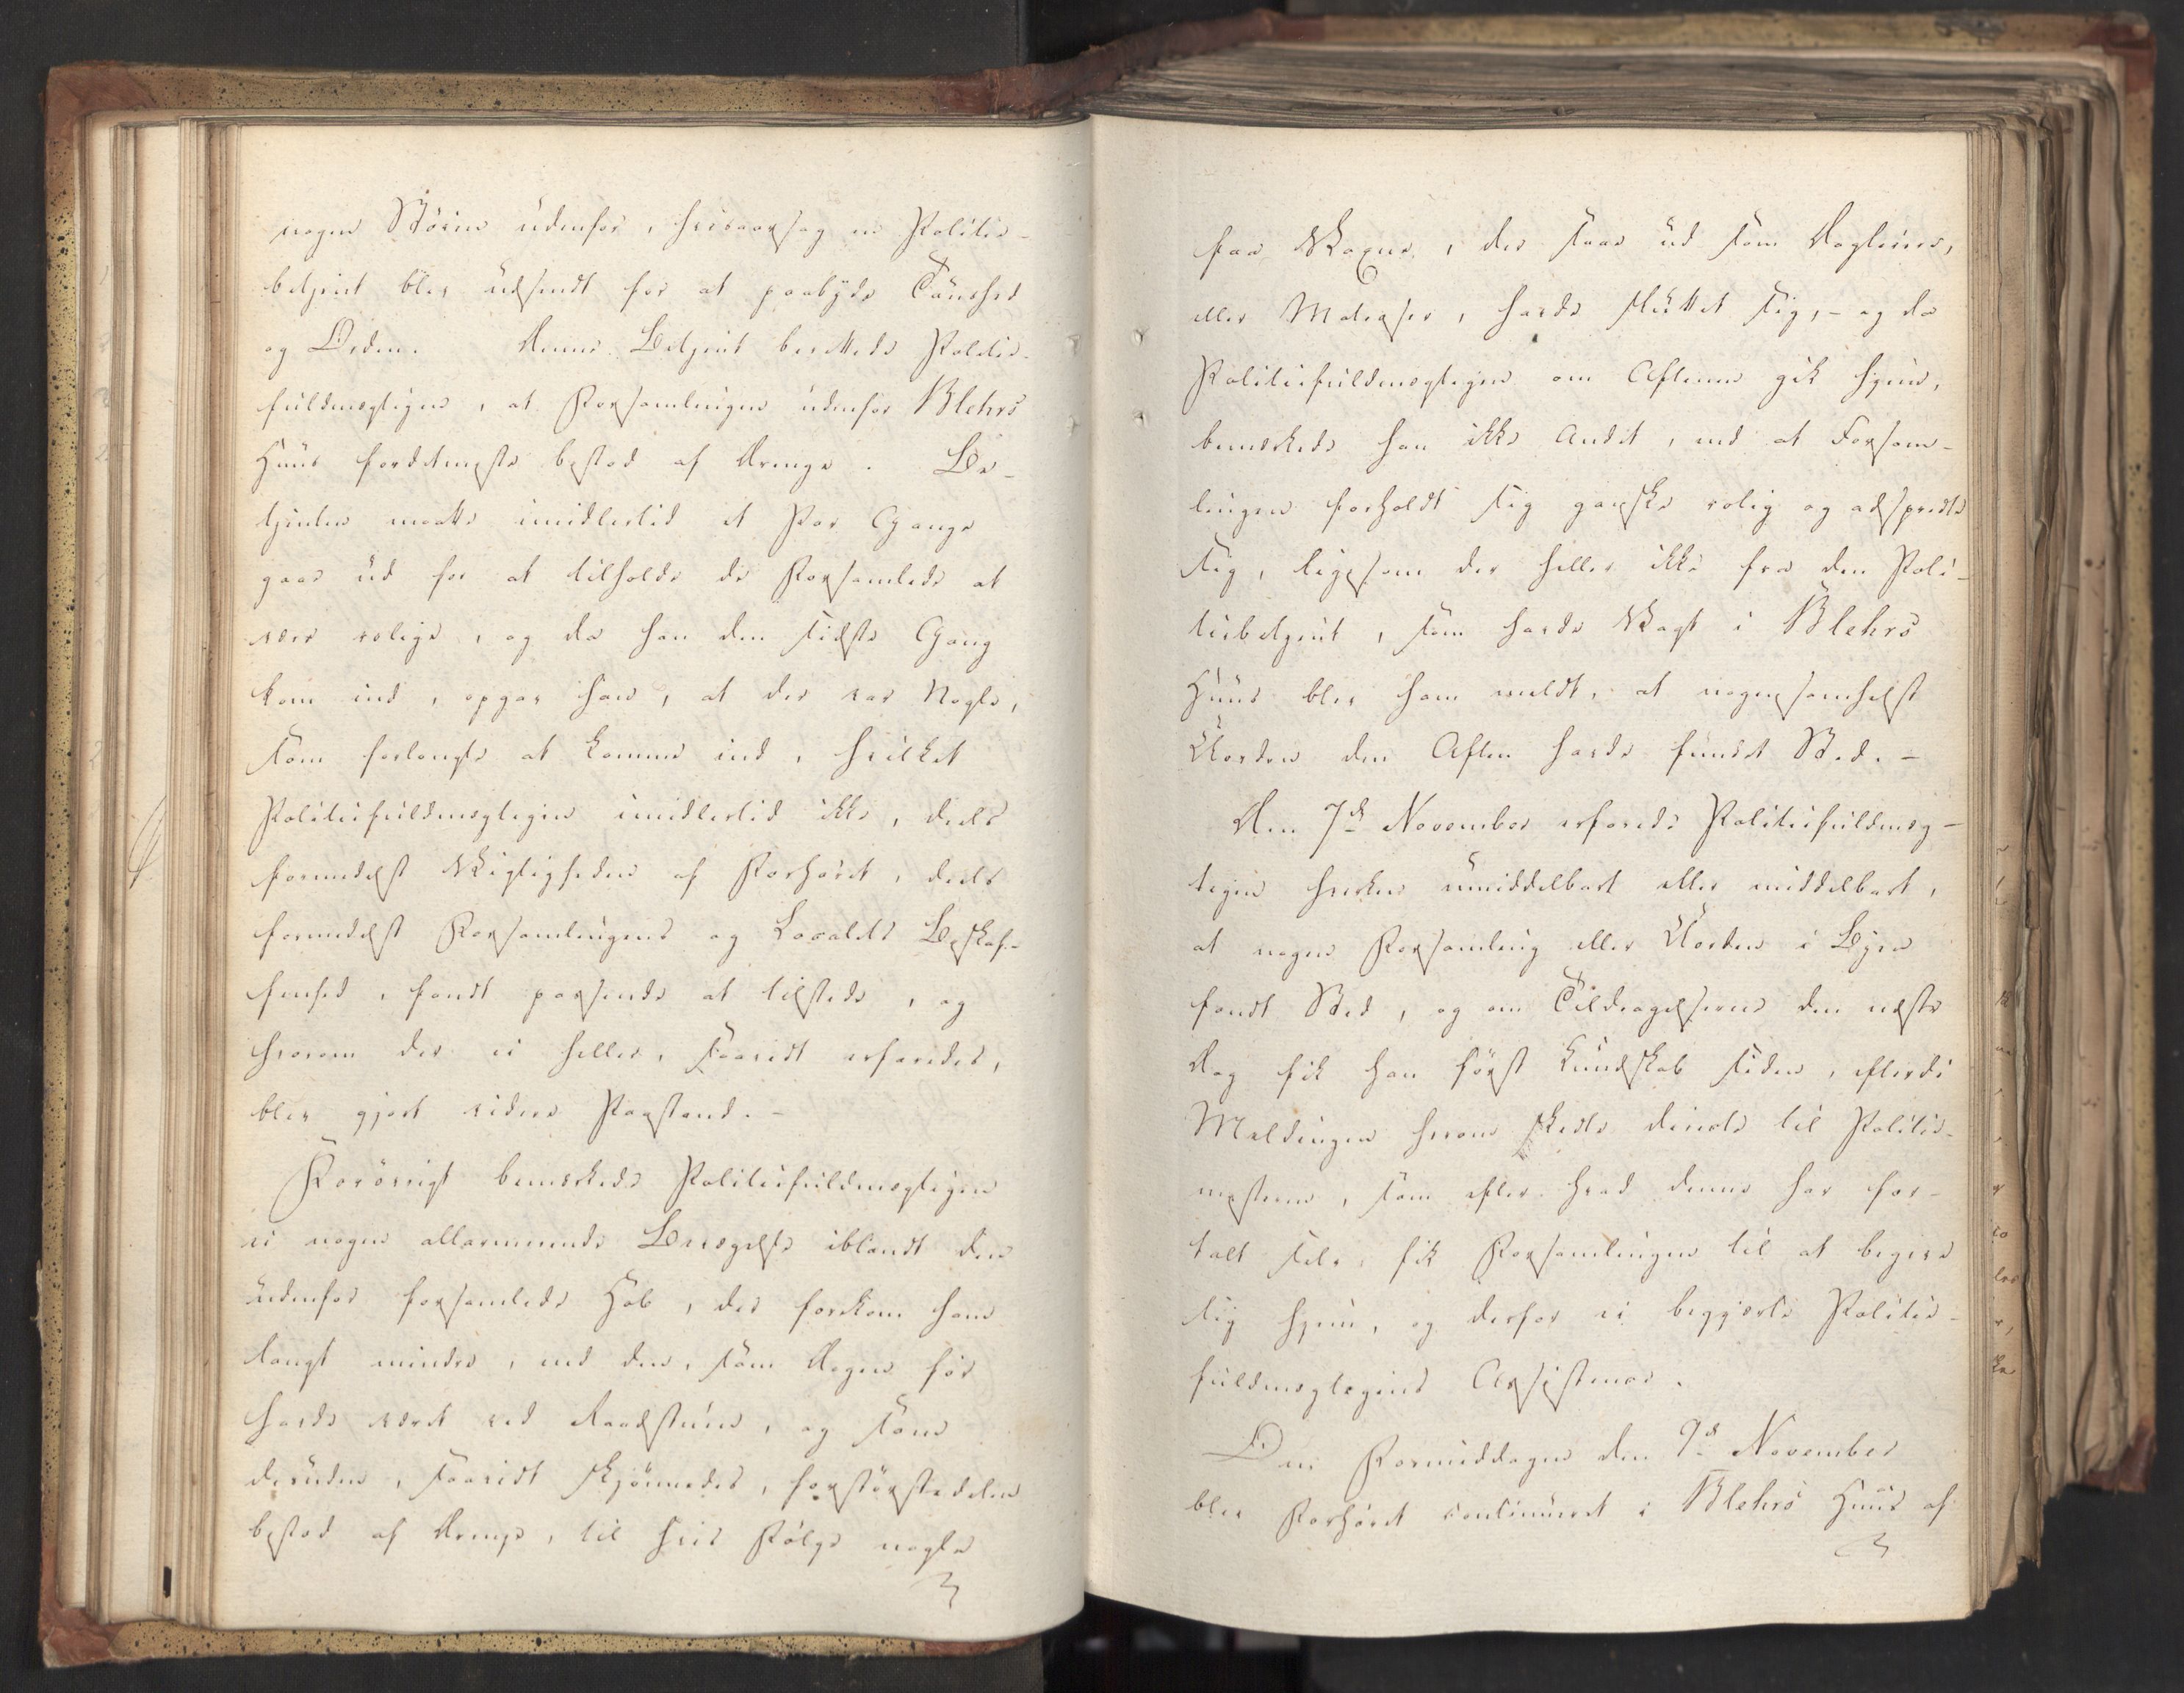 nogen Støien udenfor, hvisaarsag en Politie-
betjent blev udsendt for at paabyde Taushed
og Orden. Denne Betjent berettede Politie-
fuldmægtigen, at Forsamlingen udenfor Blehrs
Huus fordetmeste bestod af Drenge. Be-
tjenten maatte imidlertid et Par Gange
gaae ud for at tilholde de Forsamlede at
være rolige, og da han den sidste Gang
kom ind, opgav han, at der var Nogle,
som forlangte at komme ind, hvilket
Politiefuldmægtigen imidlertid ikke, deels
formedelst Vigtigheden af Forhøret, deels
formedelst Forsamlingens og Localets Beskaf-
fenhed, fandt passende at tilstede, og
hvorom der ei heller, saavidt erfaredes,
blev gjort videre Paastand. -
Forøvrigt bemærkede Politiefuldmægtigen
ei nogen allarmerende Bevægelse iblandt den
udenfor forsamlede Hob, der forekom ham
langt mindre, end den, som Dagen før
havde været ved Raadstuen, og som
desuden, saavidt skjønnedes, forstørstedelen
bestod af Drenge, til hvis Følge nogle
faa Voxne, der saae ud som Dagleiere,
eller Matroser, havde sluttet sig, - og da
Politiefuldmægtigen om Aftenen gik hjem,
bemærkede han ikke Andet, end at Forsam-
lingen forholdt sig ganske rolig og adspredte
sig, ligesom der heller ikke fra den Poli-
tiebetjent, som havde Vagt i Blehrs
Huus blev ham meldt, at nogensomhelst
Uorden den Aften havde fundet Sted. -
Den 7de November erfarede Politiefuldmæg-
tigen hverken umiddelbart eller middelbart,
at nogen Forsamling eller Uorden i Byen
fandt Sted, og om Tildragelserne den næste
Dag fik han først Kundskab siden, efterdi
Meldingen herom skedte directe til Politie-
mesteren, som efter hvad denne har for-
talt selv, fik Forsamlingen til at begive
sig hjem, og derfor ei begjærte Politie-
fuldmægtigens Assistence.
Om Formiddagen den 9de November
blev Forhøret continueret i Blehrs Huus af